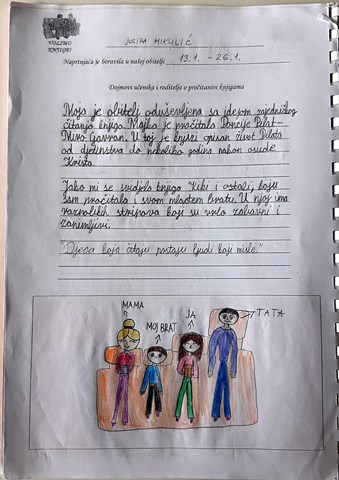 VOLIMO
KNJIGE!
JOSIPA MIKULIĆ
Naprtnjača je boravila u našoj obitelji 13.1. - 26.1.
Dojmovi učenika i roditelja o pročitanim knjigama
Moja je obitelj oduševljena sa idejom zajedničkog
čitanja knjiga. Majka je pročitala Poncije Pilat-
Miro Gavran. U toj je knjizi opisan život Pilata
od djetinstva do nekoliko godina nakon osude
Krista.
Jako mi se svidjela knjiga Kiki i ostali, koju
sam pročitala i svom mlađem bratu. U njoj ima
raznolikih stripova koji su vrlo zabavni i
zanimljivi.
"Djeca koja čitaju postaju ljudi koji misle."
MAMA
MOJ BRAT
JA
TATA